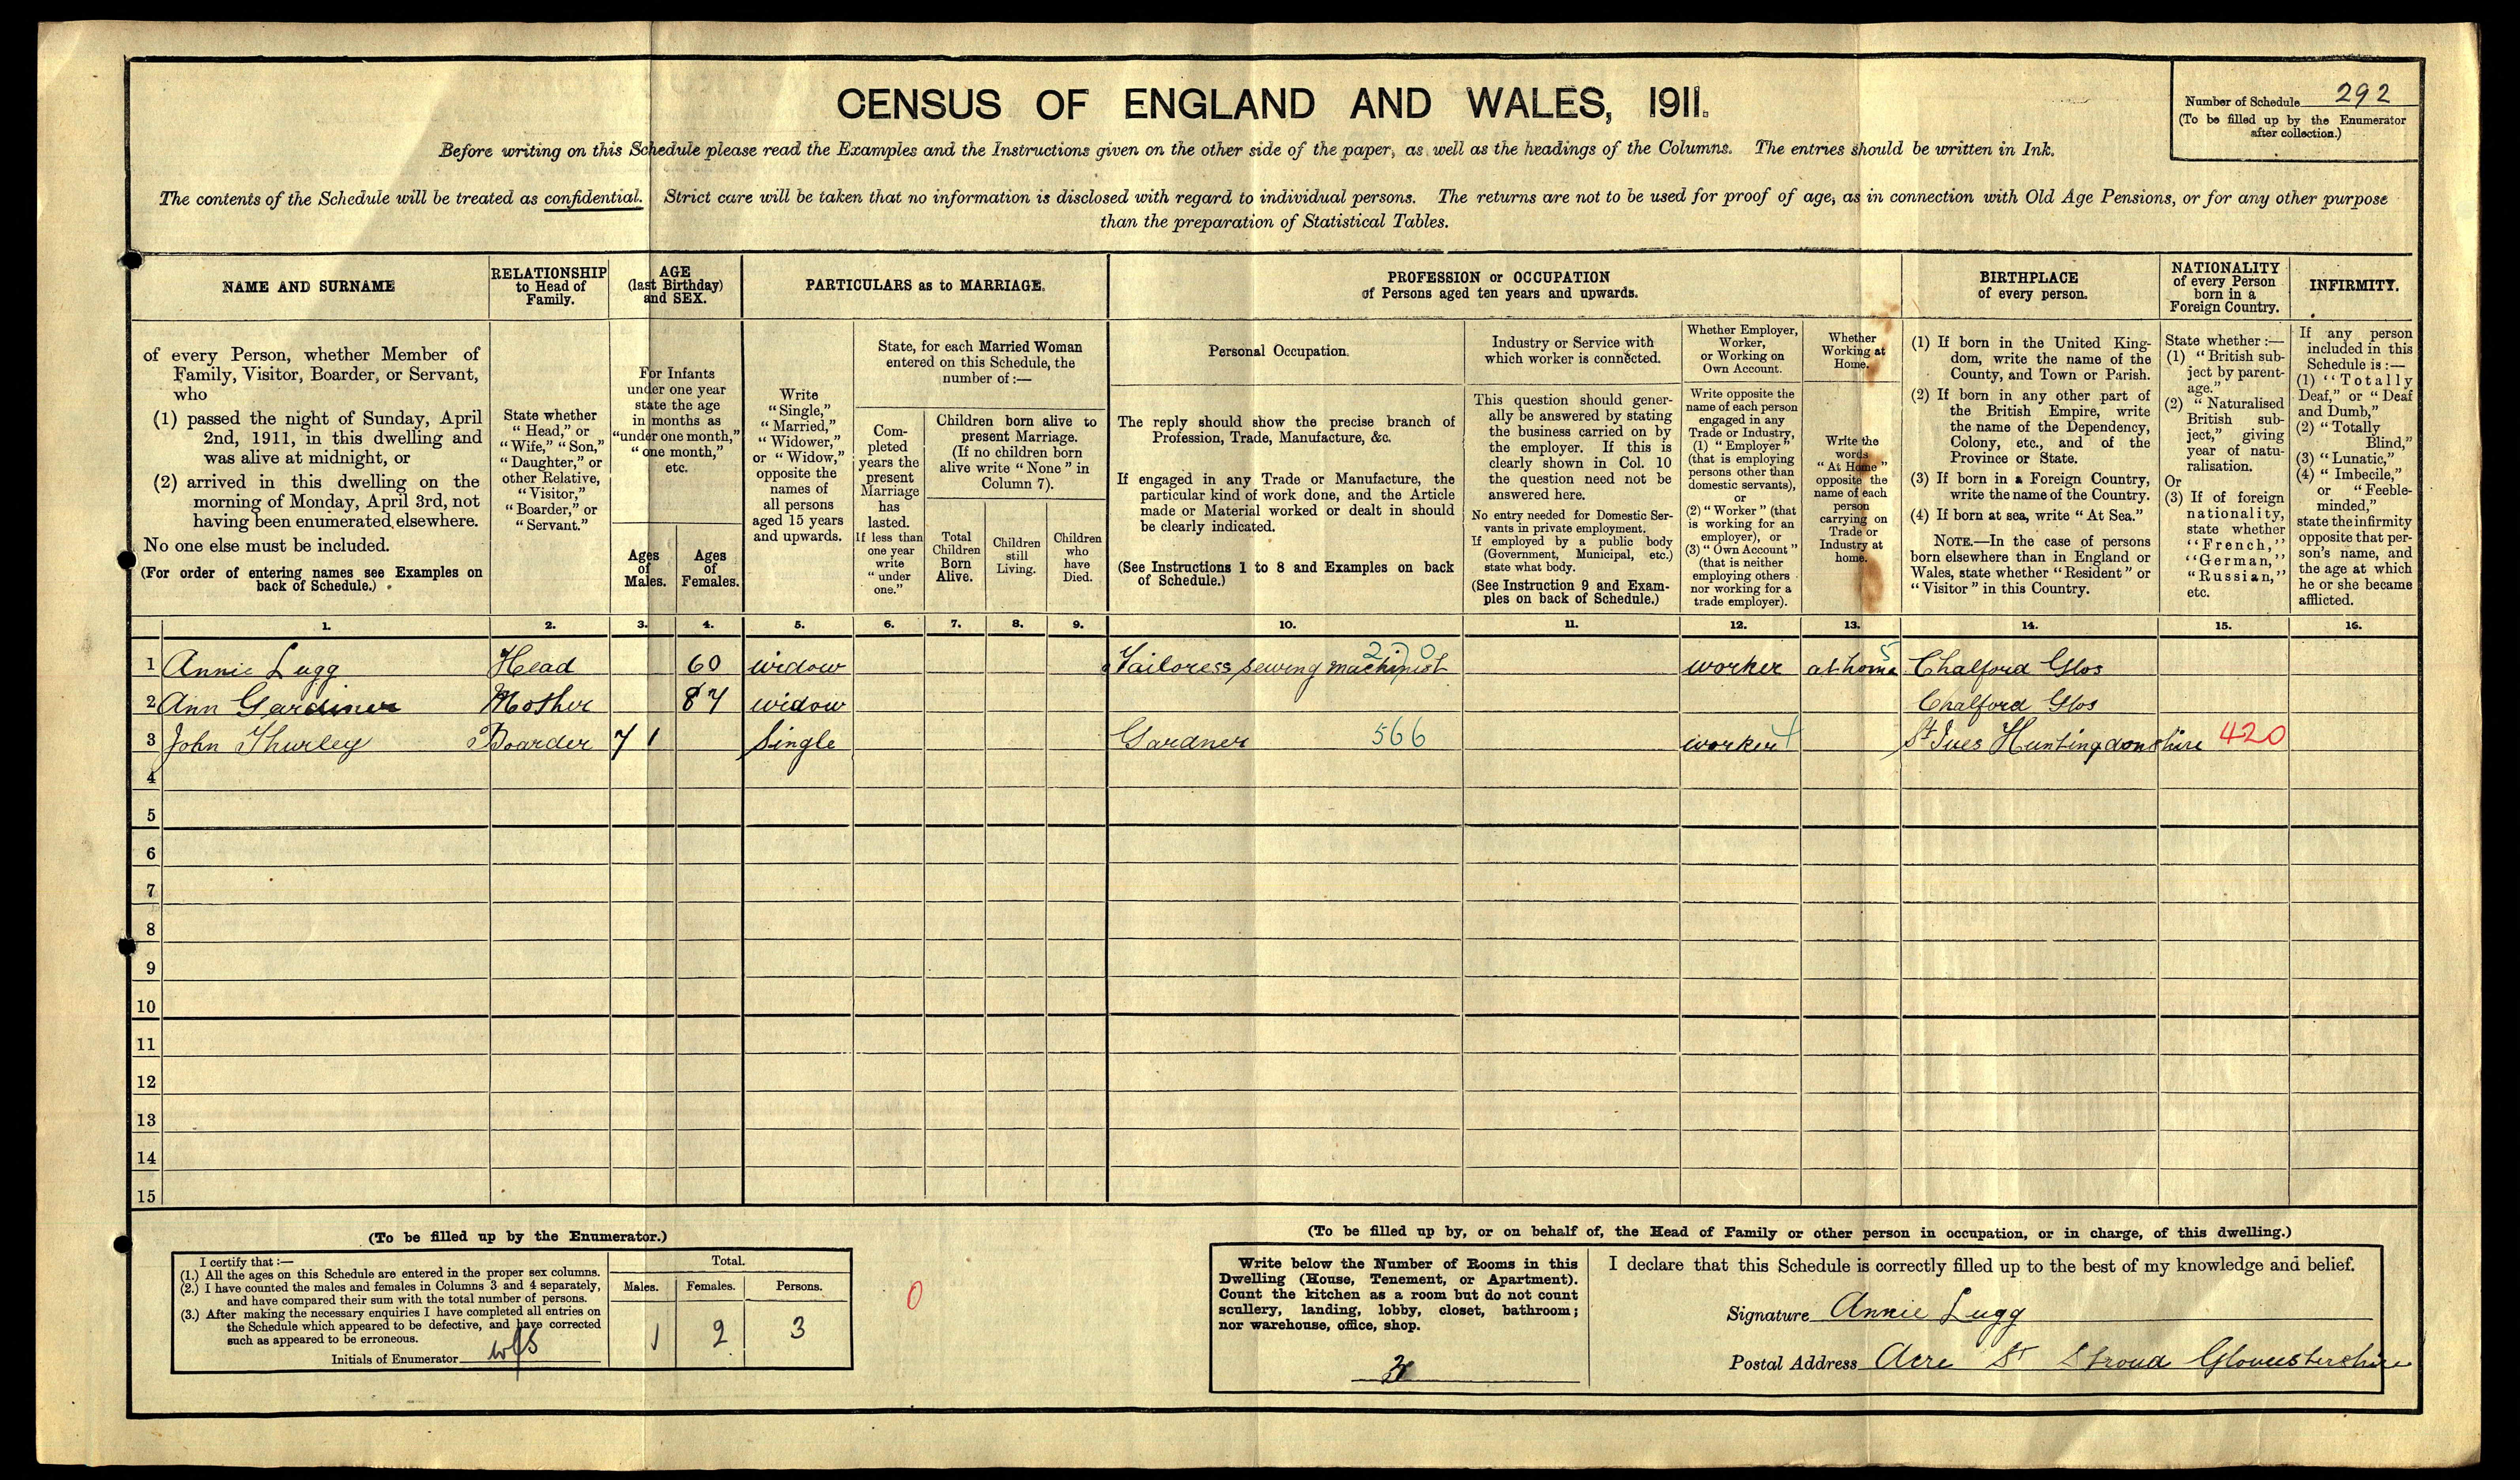 CENSUS OF ENGLAND AND WALES, 1911.
Number of Schedule 292
(To be filled up by the Enumerator
after collection.)
Before writing on this Schedule please read the Examples and the Instructions given on the other side of the paper, as well as the headings of the Columns. The entries should be written in Ink.
The contents of the Schedule will be treated as confidential. Strict care will be taken that no information is disclosed with regard to individual persons. The returns are not to be used for proof of age, as in connection with Old Age Pensions, or for any other purpose
than the preparation of Statistical Tables.
NAME AND SURNAME
RELATIONSHIP
to Head of
Family.
AGE
(last Birthday)
and SEX.
PARTICULARS as to MARRIAGE.
PROFESSION or OCCUPATION
of Persons aged ten years and upwards.
BIRTHPLACE
of every person.
NATIONALITY
of every Person
born in a
Foreign Country.
INFIRMITY.
of every Person, whether Member of
Family, Visitor, Boarder, or Servant,
who
(1) passed the night of Sunday, April
2nd, 1911, in this dwelling and
was alive at midnight, or
(2) arrived in this dwelling on the
morning of Monday, April 3rd, not
having been enumerated elsewhere.
No one else must be included.
(For order of entering names see Examples on
back of Schedule.)
State whether
"Head," or
"Wife," "Son,"
"Daughter," or
other Relative,
"Visitor,"
"Boarder," or
"Servant."
For Infants
under one year
state the age
in months as
"under one month,"
"one month,"
etc.
Ages
of
Males.
Ages
of
Females.
Write
"Single,"
"Married,"
"Widower,"
or "Widow,"
opposite the
names of
all persons
aged 15 years
and upwards.
State, for each Married Woman
entered on this Schedule, the
number of :—
Com-
pleted
years the
present
Marriage
has
lasted.
If less than
one year
write
"under
one."
Children born alive to
present Marriage.
(If no children born
alive write "None" in
Column 7).
Total
Children
Born
Alive.
Children
still
Living.
Children
who
have
Died.
Personal Occupation.
The reply should show the precise branch of
Profession, Trade, Manufacture, &c.
If engaged in any Trade or Manufacture, the
particular kind of work done, and the Article
made or Material worked or dealt in should
be clearly indicated.
(See Instructions 1 to 8 and Examples on back
of Schedule.)
Industry or Service with
which worker is connected.
This question should gener-
ally be answered by stating
the business carried on by
the employer. If this is
clearly shown in Col. 10
the question need not be
answered here.
No entry needed for Domestic Ser-
vants in private employment.
If employed by a public body
(Government, Municipal, etc.)
state what body.
(See Instruction 9 and Exam-
ples on back of Schedule.)
Whether Employer,
Worker,
or Working on
Own Account.
Write opposite the
name of each person
engaged in any
Trade or Industry,
(1) "Employer"
(that is employing
persons other than
domestic servants),
or
(2) "Worker" (that
is working for an
employer), or
(3) "Own Account"
(that is neither
employing others
nor working for a
trade employer).
Whether
Working at
Home.
Write the
words
"At Home"
opposite the
name of each
person
carrying on
Trade or
Industry at
home.
(1) If born in the United King-
dom, write the name of the
County, and Town or Parish.
(2) If born in any other part of
the British Empire, write
the name of the Dependency,
Colony, etc., and of the
Province or State.
(3) If born in a Foreign Country,
write the name of the Country.
(4) If born at sea, write "At Sea."
NOTE.—In the case of persons
born elsewhere than in England or
Wales, state whether "Resident" or
"Visitor" in this Country.
State whether :—
(1) "British sub-
ject by parent-
age."
(2) "Naturalised
British sub-
ject," giving
year of natu-
ralisation.
Or
(3) If of foreign
nationality,
state whether
"French,"
"German,"
"Russian,"
etc.
If any person
included in this
Schedule is :—
(1) "Totally
Deaf," or "Deaf
and Dumb,"
(2) "Totally
Blind,"
(3) "Lunatic,"
(4) "Imbecile,"
or "Feeble-
minded,"
state the infirmity
opposite that per-
son's name, and
the age at which
he or she became
afflicted.
1. 2. 3. 4. 5. 6. 7. 8. 9. 10. 11. 12. 13. 14. 15. 16.
1 Annie Lugg Head 60 widow Tailoress sewing machinist 270 worker at home 5 Chalford Glos
2 Ann Gardiner Mother 87 widow Chalford Glos
3 John Thurley Boarder 71 Single Gardner 566 worker St Ives Huntingdonshire 420
4
5
6
7
8
9
10
11
12
13
14
15
(To be filled up by the Enumerator.)
I certify that :—
(1.) All the ages on this Schedule are entered in the proper sex columns.
(2.) I have counted the males and females in Columns 3 and 4 separately,
and have compared their sum with the total number of persons.
(3.) After making the necessary enquiries I have completed all entries on
the Schedule which appeared to be defective, and have corrected
such as appeared to be erroneous.
Initials of Enumerator
Total.
Males. Females. Persons.
1 2 3
0
(To be filled up by, or on behalf of, the Head of Family or other person in occupation, or in charge, of this dwelling.)
Write below the Number of Rooms in this
Dwelling (House, Tenement, or Apartment).
Count the kitchen as a room but do not count
scullery, landing, lobby, closet, bathroom;
nor warehouse, office, shop.
I declare that this Schedule is correctly filled up to the best of my knowledge and belief.
Signature Annie Lugg
Postal Address Acre St Stroud Gloucestershire